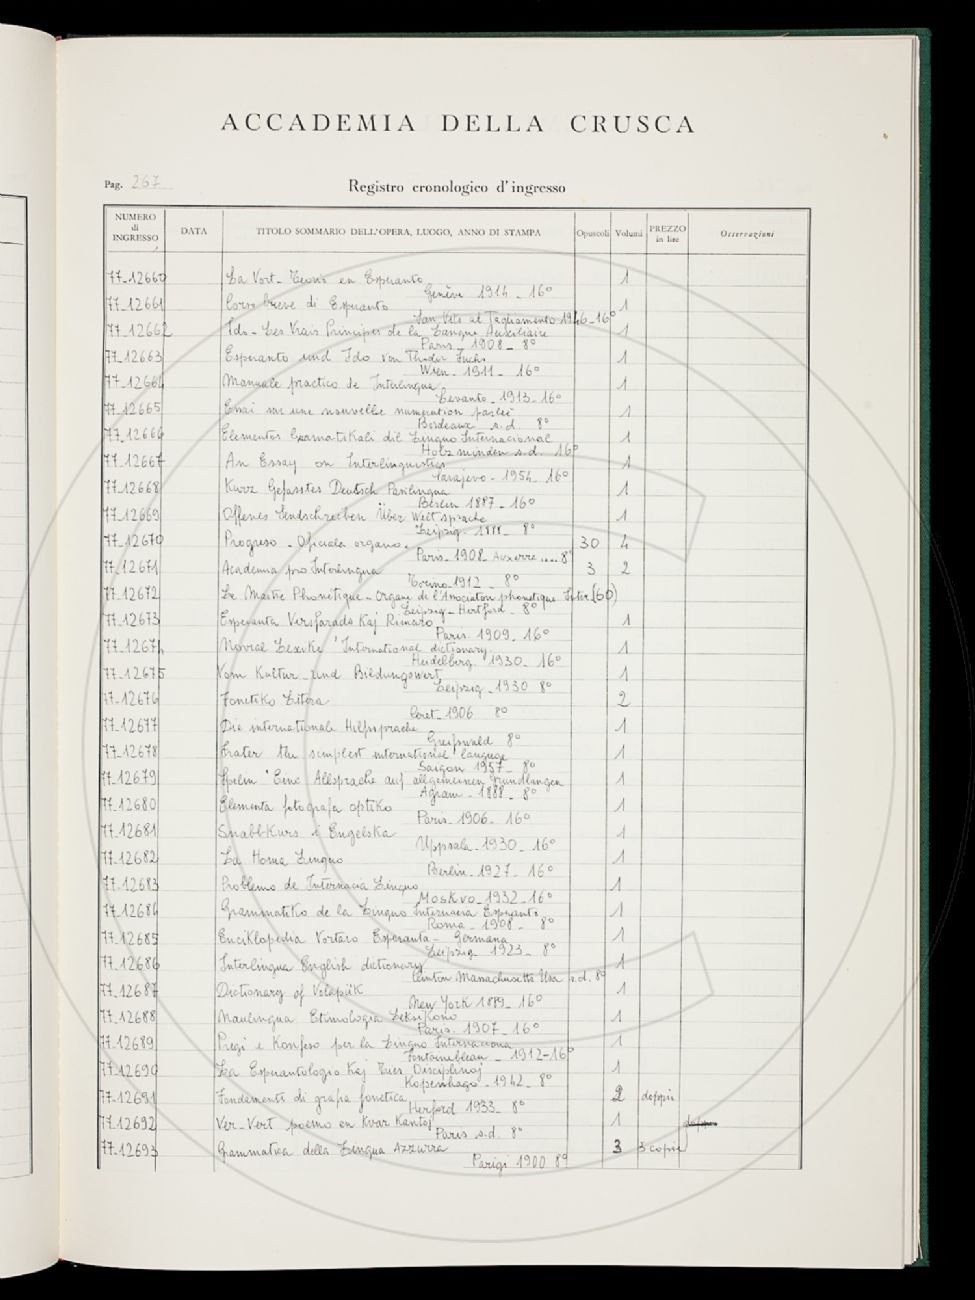 ACCADEMIA DELLA CRUSCA
Pag. 267
Registro cronologico d'ingresso
NUMERO di INGRESSO DATA TITOLO SOMMARIO DELL'OPERA, LUOGO, ANNO DI STAMPA Opuscoli Volumi PREZZO in lire Osservazioni
77-12660 La Vort-Teorio en Esperanto 1
Genève 1914 - 16°
77-12661 Corso breve di Esperanto 1
San Vito al Tagliamento 1946-16°
77-12662 Ido-Les Vrais Principes de la Langue Auxiliaire 1
Paris - 1908 - 8°
77-12663 Esperanto und Ido von Fuchs 1
Wien - 1911 - 16°
77-12664 Manuale practico de Interlingua 1
Levanto - 1913 - 16°
77-12665 Essai sur une nouvelle numération parlée 1
Bordeaux s.d. 8°
77-12666 Elementos Gramatikali dil Linguo Internacional 1
Holzminden s.d. 16°
77-12667 An Essay on Interlinguistics 1
Sarajevo - 1954 - 16°
77-12668 Kurz Gefasstes Deutsch Pasilingua 1
Berlin 1887 - 16°
77-12669 Offenes Sendschreiben Über Weltsprache 1
Leipzig - 1888 - 8°
77-12670 Progreso - Oficiala organo. 30 4
Paris - 1908 - Auxerre .... 8°
77-12671 Academia pro Interlingua 3 2
Torino 1912 - 8°
77-12672 Le Maître Phonétique - Organe de l'Association phonétique (60)
Leipzig - Hertford - 8°
77-12673 Esperanta Versfarado Kaj Rimaro 1
Paris. 1909. 16°
77-12674 Novial Lexike 'International dictionary. 1
Heidelberg. 1930 - 16°
77-12675 Vom Kultur - und Bildungswert 1
Leipzig - 1930 8°
77-12676 Fonetiko Litera 2
Ceret - 1906 8°
77-12677 Die internationale Hilfssprache 1
Greifswald 8°
77-12678 Frater the simplest international language 1
Saigon 1957 - 8°
77-12679 Spelin 'Eine Allsprache auf allgemeinen Grundlangen 1
Agram - 1888 - 8°
77-12680 Elementa fotografa optiko 1
Paris - 1906 - 16°
77-12681 Snabb-Kurs i Engelska 1
Uppsala - 1930 - 16°
77-12682 La Homa Linguo 1
Berlin - 1927 - 16°
77-12683 Problemo de Internacia Linguo 1
Moskvo - 1932 - 16°
77-12684 Grammatiko de la Linguo Internacia Esperanto 1
Roma - 1908 - 8°
77-12685 Enciklopedia Vortaro Esperanta - Germana 1
Leipzig - 1923 - 8°
77-12686 Interlingua English dictionary 1
Clinton Massachusetts Usa s.d. 8°
77-12687 Dictionary of Volapük 1
New York 1889 - 16°
77-12688 Naulingua Etimologia Leksikono 1
Paris. 1907 - 16°
77-12689 Pregi e Konfeso per la Linguo Internaciona 1
Fontainebleau - 1912-16°
77-12690 La Esperantologio Kaj Ties Disciplinoj 1
Kopenhago - 1942 - 8°
77-12691 Fondamenti di grafia fonetica 2 doppii
Herford 1933 - 8°
77-12692 Ver-Vert poemo en Kvar Kantoj 1
Paris s.d. 8°
77-12693 Grammatica della Lingua Azzurra 3 3 copie
Parigi 1900 8°